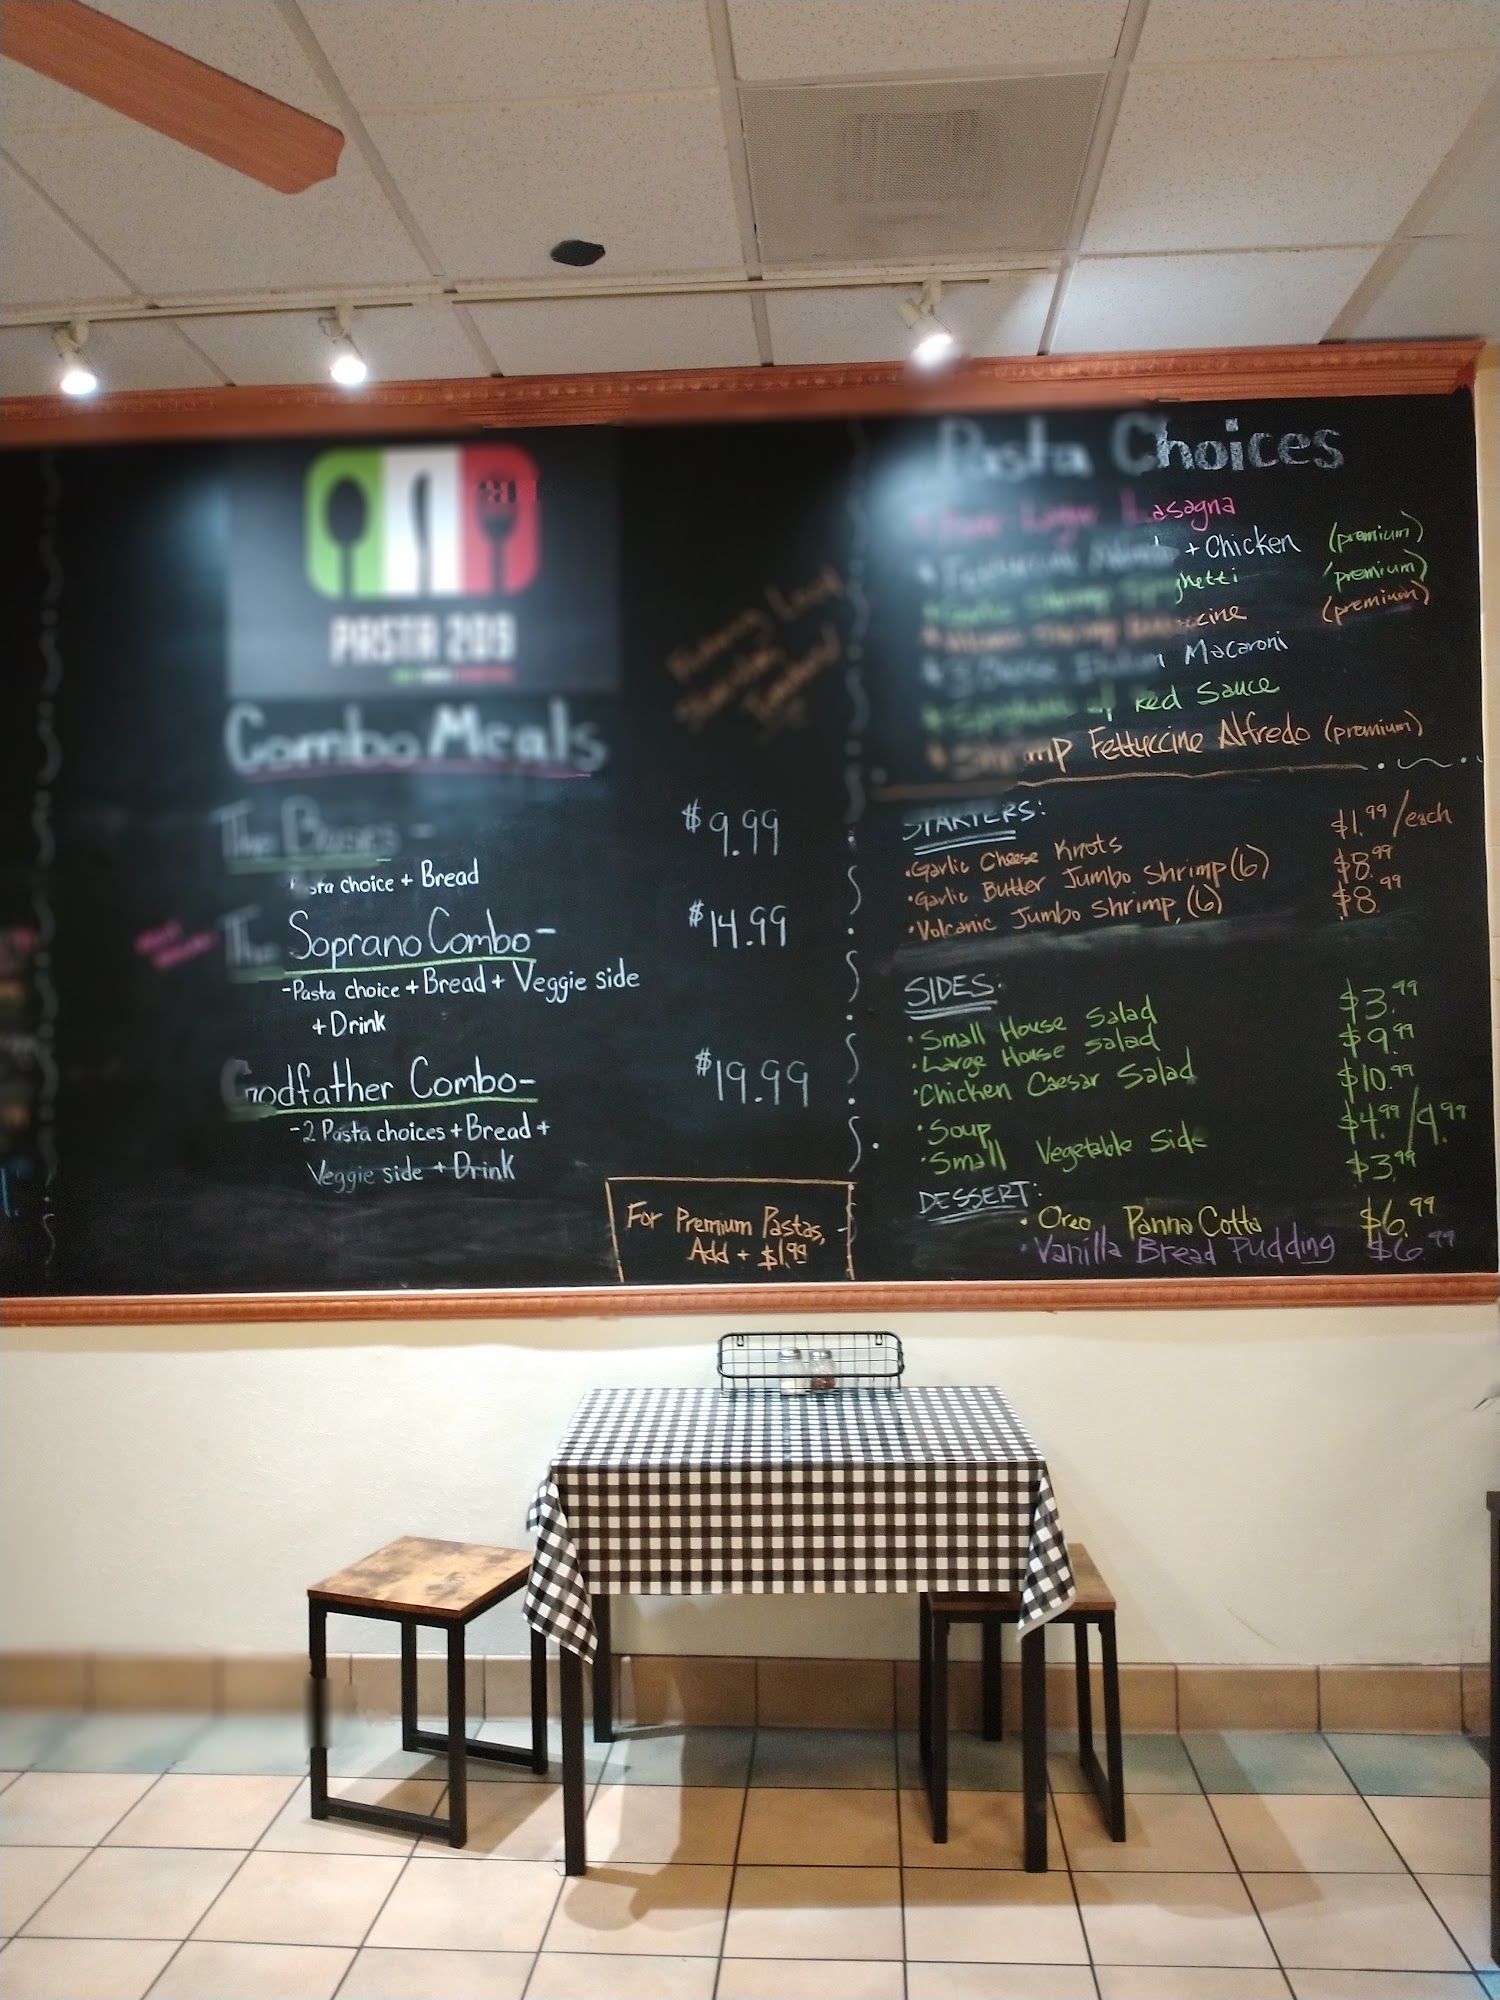 PASTA 209
Combo Meals
The Bases -
Pasta choice + Bread
$9.99
The Soprano Combo-
-Pasta choice + Bread + Veggie side
+ Drink
$14.99
Godfather Combo-
-2 Pasta choices + Bread +
Veggie side + Drink
$19.99
For Premium Pastas,
Add + $1.99
Pasta Choices
Lasagna
+ Chicken (premium)
Shrimp Spaghetti (premium)
Shrimp (premium)
Macaroni
Spaghetti w/ Red Sauce
Shrimp Fettuccine Alfredo (premium)
STARTERS:
•Garlic Cheese Knots $1.99/each
•Garlic Butter Jumbo Shrimp (6) $8.99
•Volcanic Jumbo Shrimp, (6) $8.99
SIDES:
•Small House Salad $3.99
•Large House Salad $9.99
•Chicken Caesar Salad $10.99
•Soup $4.99/9.99
•Small Vegetable Side $3.99
DESSERT:
•Oreo Panna Cotta $6.99
•Vanilla Bread Pudding $6.99